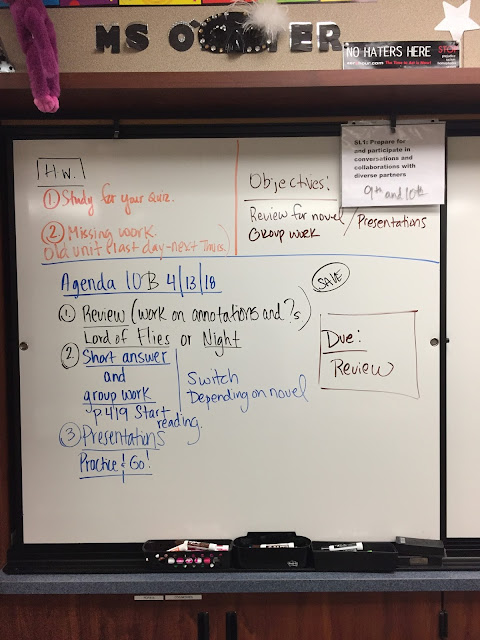 MS O
ER
NO HATERS HERE STOP
SL1: Prepare for
and participate in
conversations and
collaborations with
diverse partners
9th and 10th
H.W.
① Study for your Quiz.
② Missing work.
Old unit last day-next Tues.
Objectives:
Review for novel / Presentations
Group work
Agenda 10B 4/13/18
SAVE
① Review (work on annotations and ?s)
Lord of Flies or Night
② Short answer
and
group work
p 419 Start
reading.
Switch
Depending on novel
③ Presentations
Practice & Go!
Due:
Review